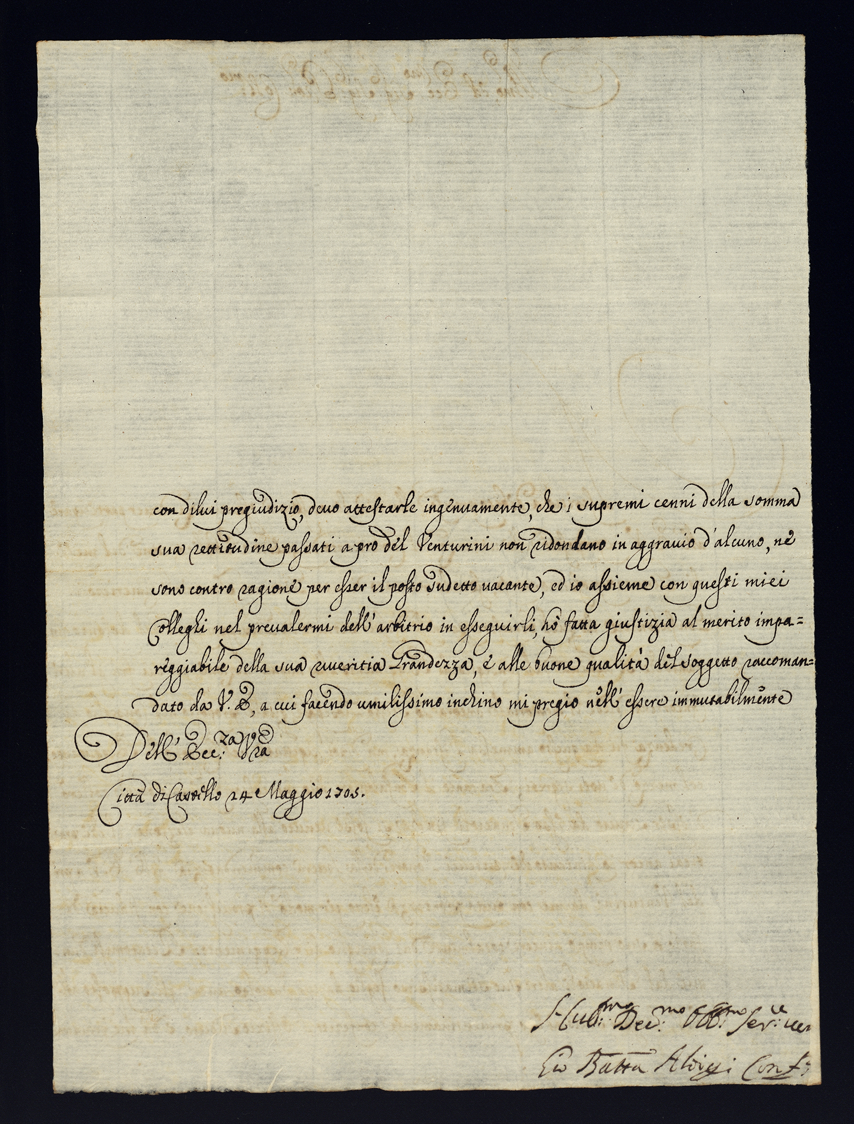 con dilui pregiudizio, devo attestarle ingenuamente, che i supremi cenni della somma
sua rettitudine passati a pro del Venturini non ridondano in aggrauio d'alcuno, nè
sono contro ragione per esser il posto sudetto uacante, ed io assieme con questi miei
Colleghi nel preualermi dell' arbitrio in esseguirli, hò fatta giustizia al merito impa=
reggiabile della sua riueritia Grandezza, e alle buone qualità del soggetto raccoman=
dato da V. E., a cui facendo umilissimo inchino mi pregio nell' essere immutabilmente
Dell' Ecc.za Vra
Città di Castello 24 Maggio 1705.
Hu.mo Deu.mo Obb.mo Ser.re
Gio Batta